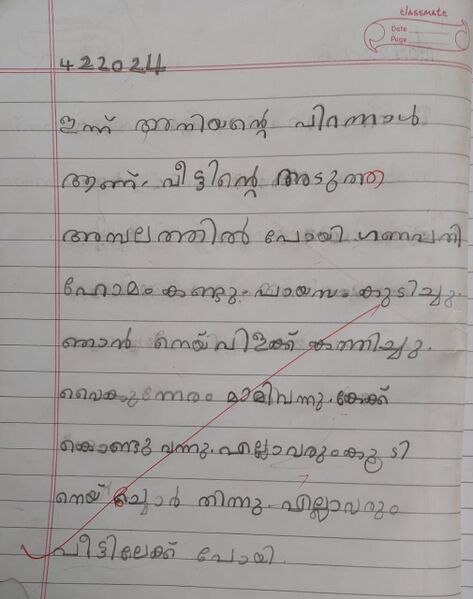 classmate
Date
Page
4 2 2024
ഇന്ന് അനിയന്റെ പിറന്നാൾ
ആണ്. വീട്ടിന്റെ അടുത്ത
അമ്പലത്തിൽ പോയി ഗണപതി
ഹോമം കണ്ടു. പായസം കുടിച്ചു.
ഞാൻ നെയ് വിളക്ക് കത്തിച്ചു.
വൈകുന്നേരം മാമിവന്നു. കേക്ക്
കൊണ്ടു വന്നു. എല്ലാവരുംകൂടി
നെയ് ച്ചോർ തിന്നു. എല്ലാവരും
വീട്ടിലേക്ക് പോയി.